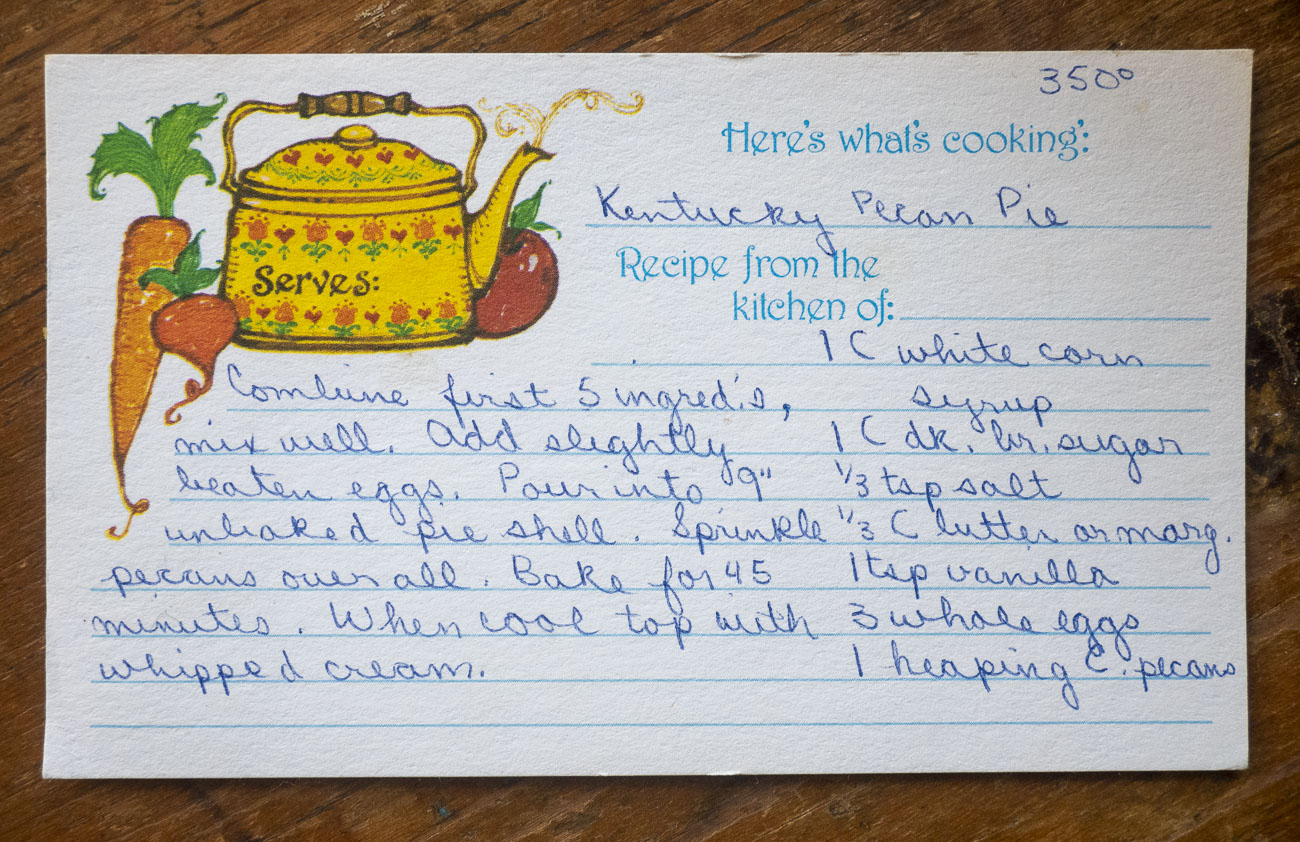 350°
Here's what's cooking':
Kentucky Pecan Pie
Serves:
Recipe from the
kitchen of:
1 C white corn
syrup
1 C dk. br. sugar
1/3 tsp salt
1/3 C butter or marg.
1 tsp vanilla
3 whole eggs
1 heaping C. pecans
Combine first 5 ingred.'s,
mix well. Add slightly
beaten eggs. Pour into 9"
unbaked pie shell. Sprinkle
pecans over all. Bake for 45
minutes. When cool top with
whipped cream.